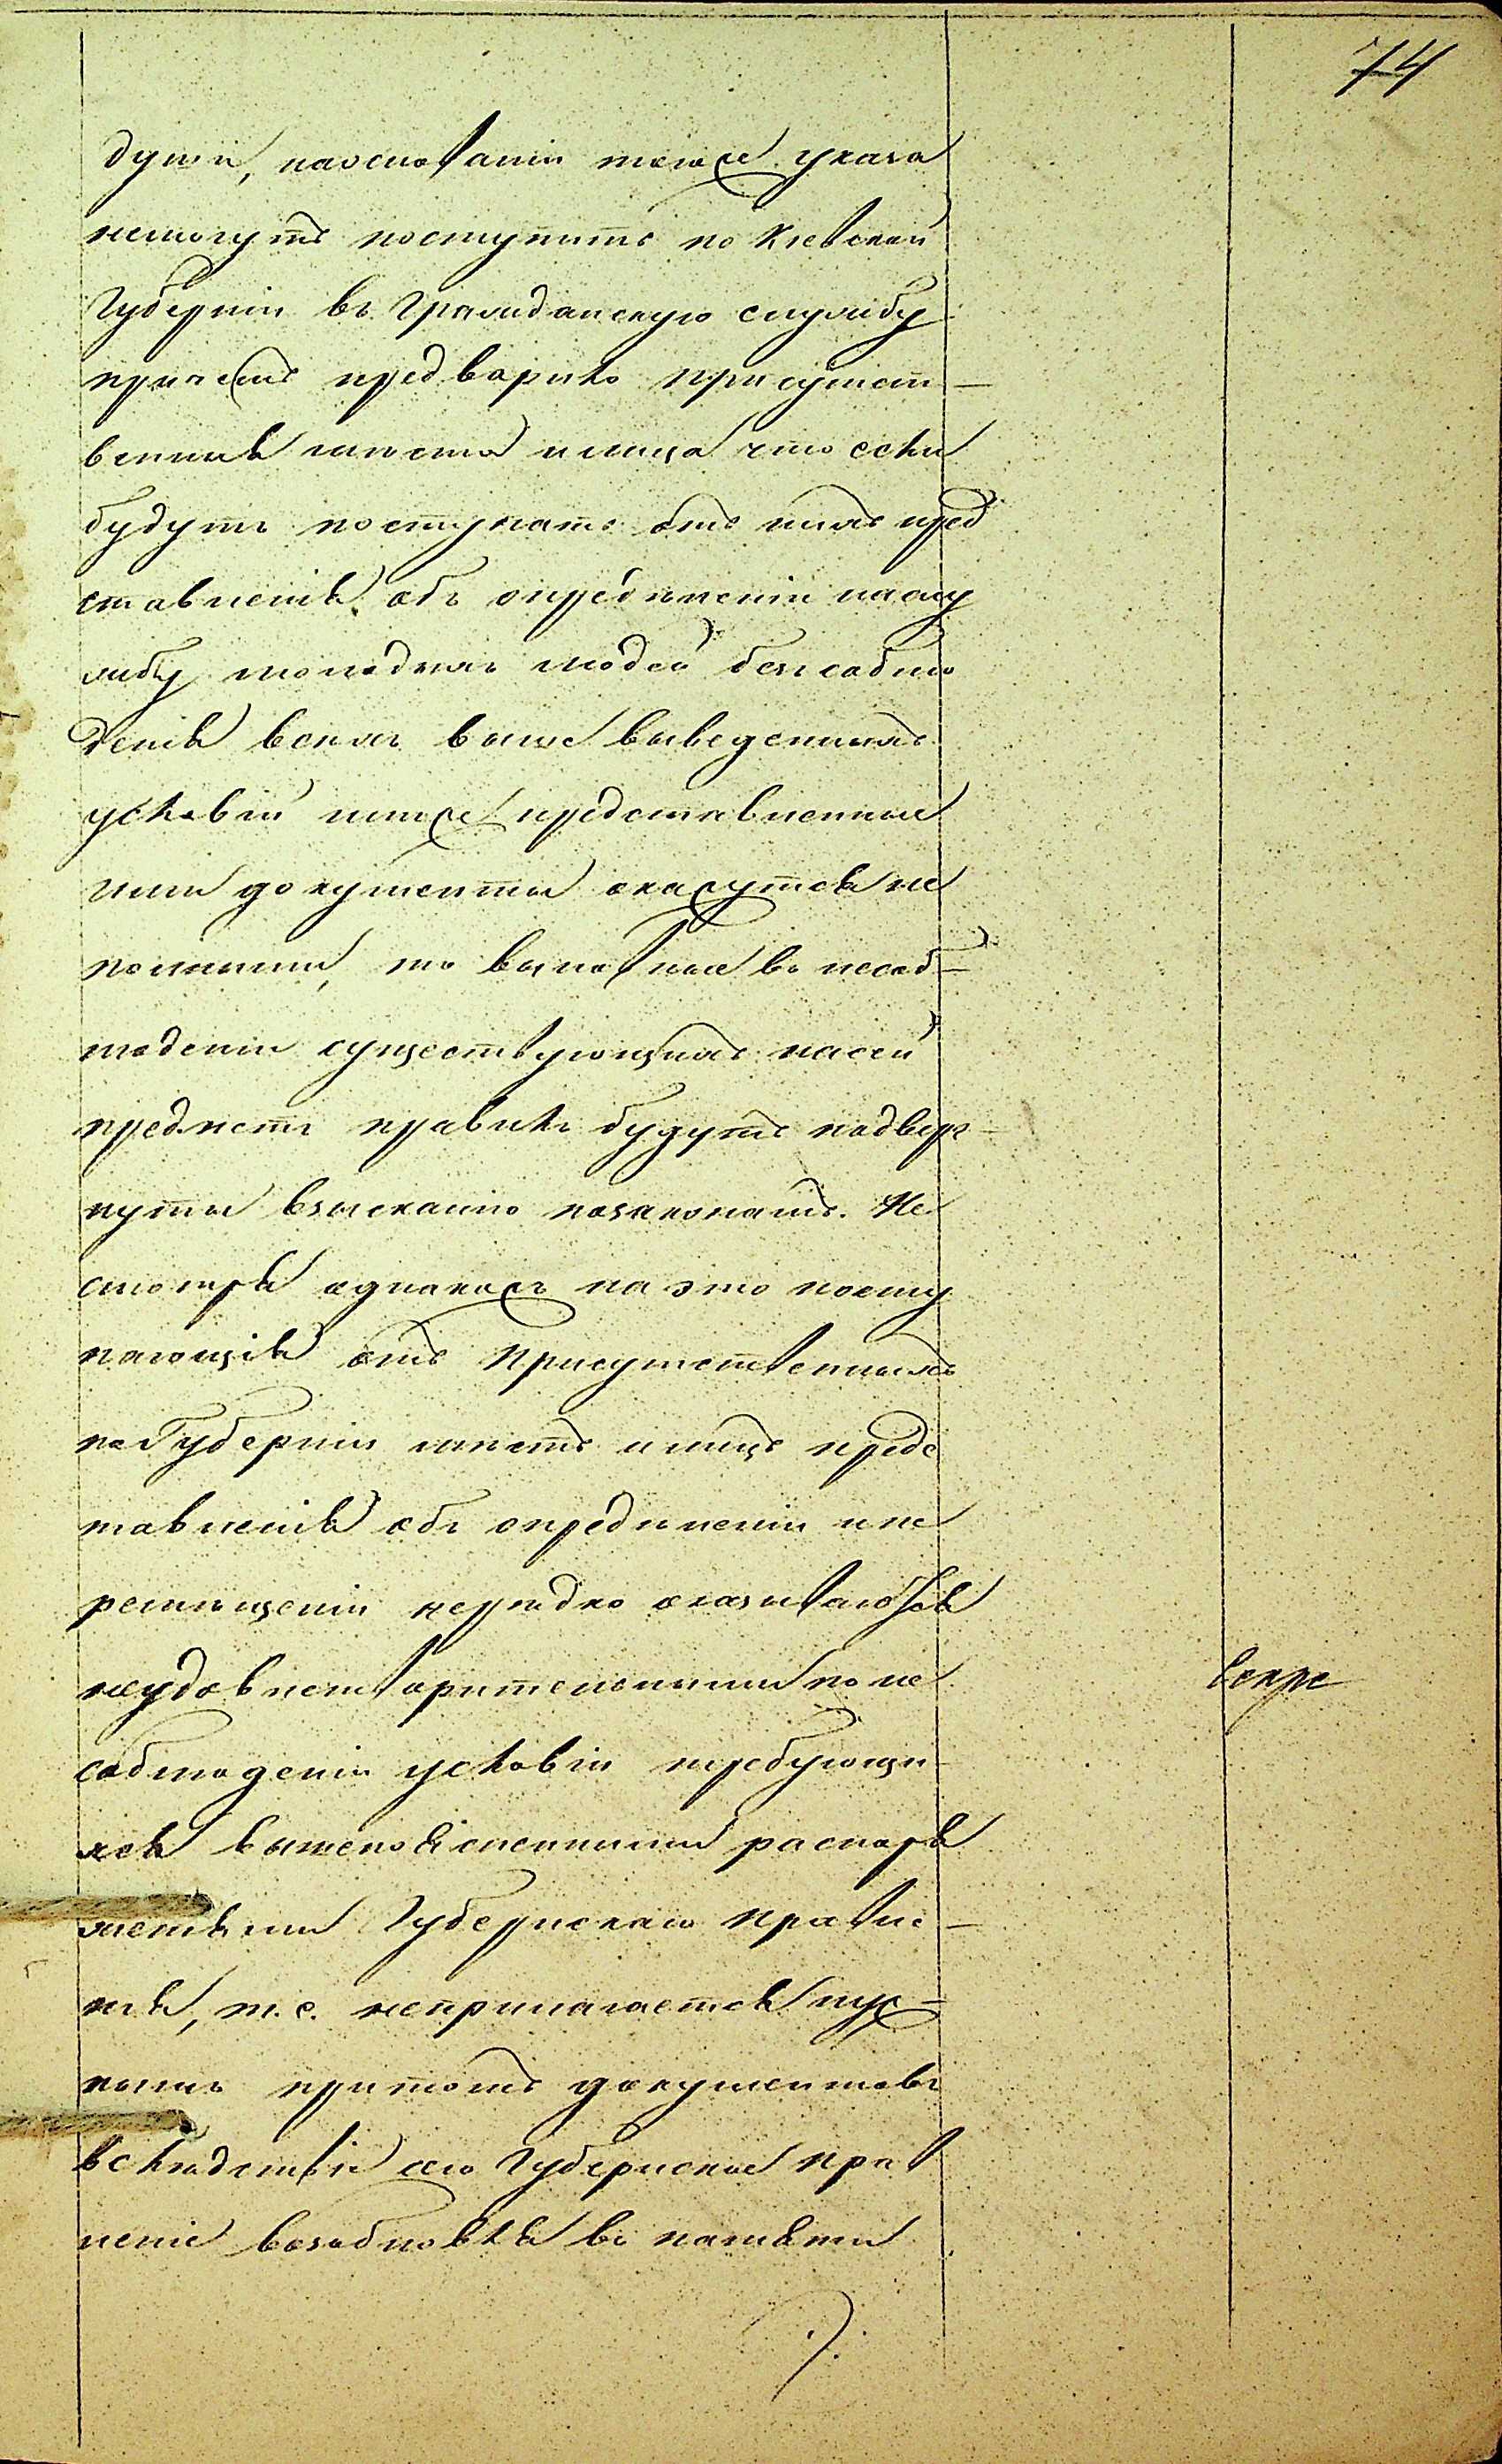 74
души, наоснованіи тогоже указа
немогутъ поступить по Кіевской
Губерніи въ Гражданскую службу
причемъ предварило присутст-
венныя мѣста и лица что если
будутъ поступать отъ нихъ пред
ставленія объ опредѣленіи наслу
жбу молодыхъ людей безъ соблю
денія всехъ выше выведенныхъ
условій или же представленные
ими документы окажутся не
полными, то виновные въ несоб-
люденіи существующихъ насей
предметъ правилъ будутъ подверг-
нуты взысканію позаконамъ. Не
смотря однакожъ на это посту
пающія отъ Присутственныхъ
по Губерніи мѣстъ и лицъ предс
тавленія объ опредѣленіи и пе
ремѣщеніи нерѣдко оказываются
неудовлетворительными по не
соблюденію условій требующи-
хся вышепоясненными распоря
женіями Губернскаго Правле-
нія, т. е. неприлагается нуж-
ныхъ притомъ документовъ
вслѣдствіе сего Губернское Прав
леніе возобновляя въ памяти